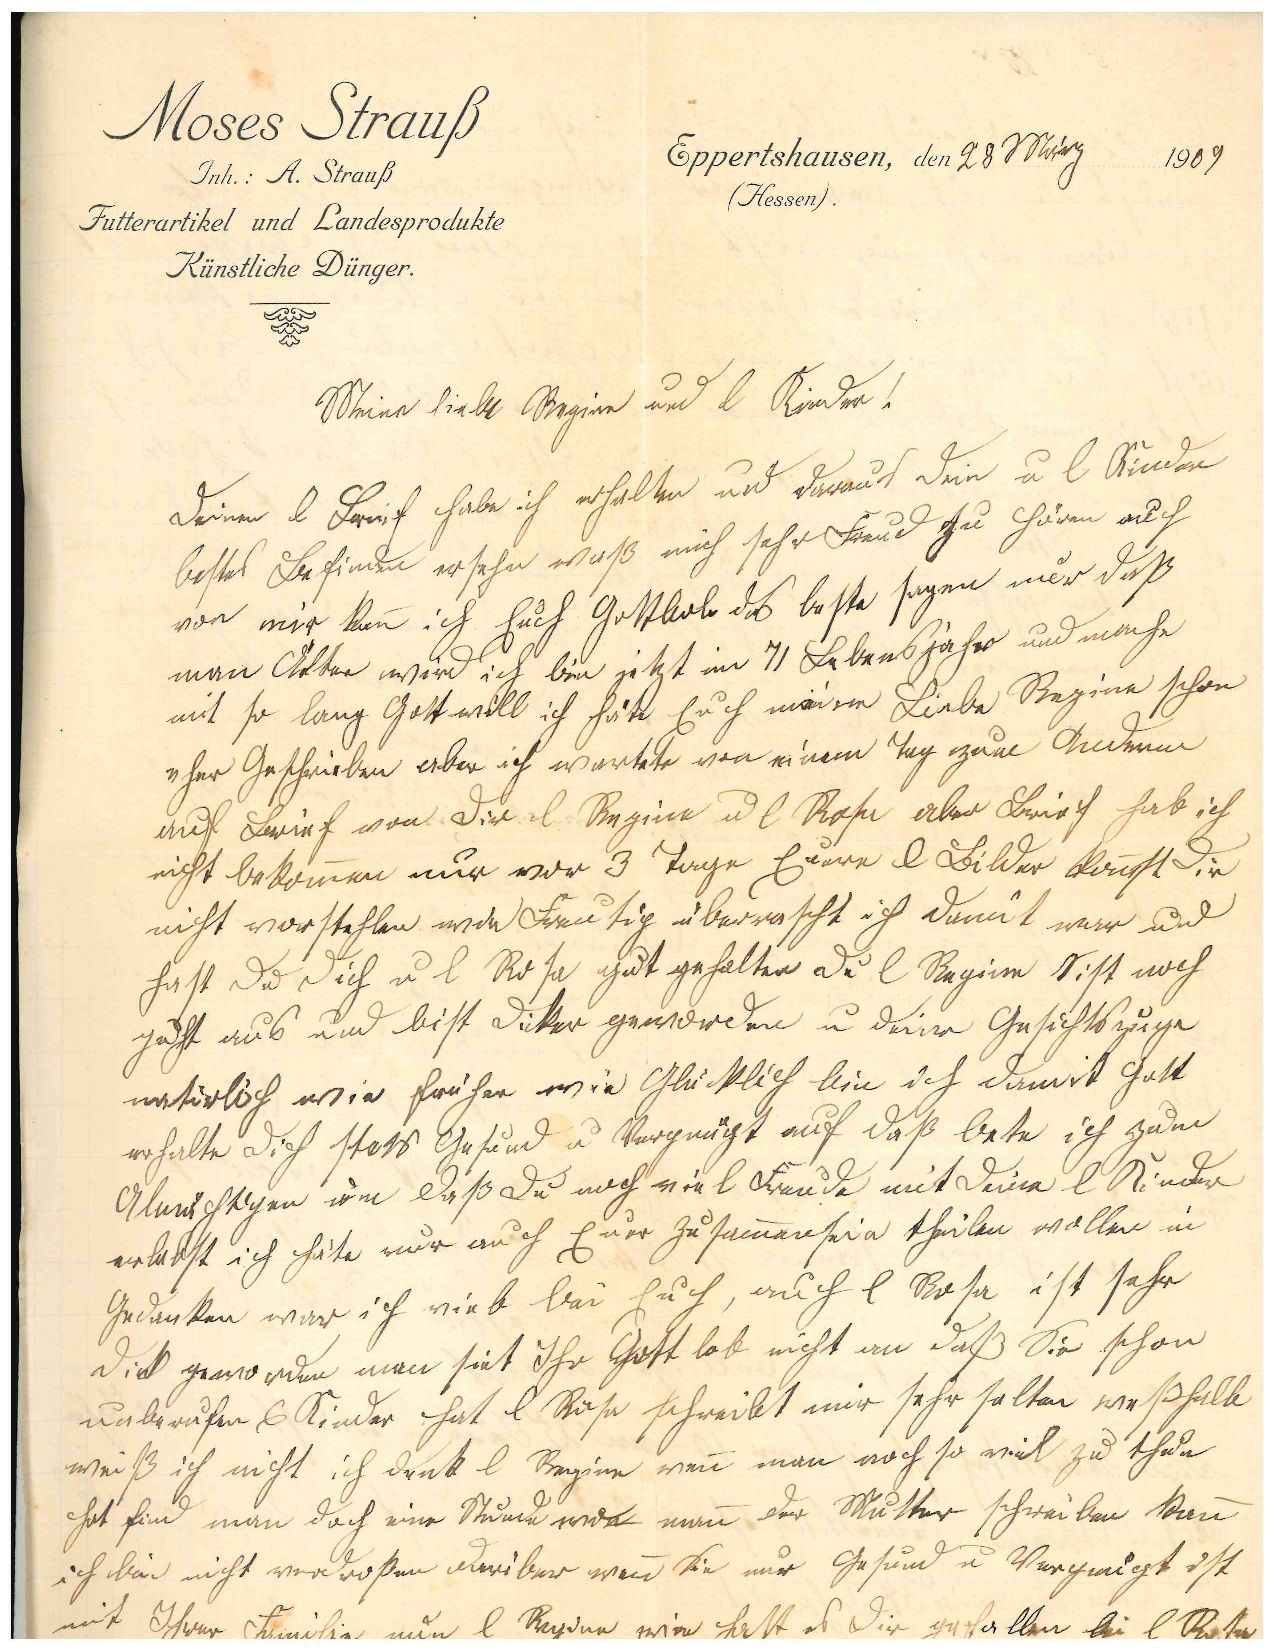 Moses Strauß
Inh.: A. Strauß
Futterartikel und Landesprodukte
Künstliche Dünger.
Eppertshausen, den 28 März 1909
(Hessen).
Meine liebe Regine und l Kinder!
Deinen l Brief habe ich erhalten und daraus Dein u l Kinder
bestes Befinden ersehn waß mich sehr Freud zu hören auch
von mir kan̄ ich Euch Gottlob das beste sagen nur daß
man Älter wird ich bin jetzt im 71 Lebensjahr und mache
mit so lang Gott will ich häte Euch meine Liebe Regine schon
eher Geschrieben aber ich wartete von einem Tag zum Andern
auf Brief von Dir l Regine u l Rosa aber Brief hab ich
nicht bekom̄en nur vor 3 Tage Eure l Bilder kan̄st Dir
nicht vorstehlen wie Freutig überrascht ich damit war und
hast Du Dich u l Rosa gut gehalten Du l Regine sist noch
guht aus und bist dicker geworden u deine Gesichtszüge
natürlich wie früher wie Glücklich bin ich damit Gott
erhalte Dich stets Gesund u Vergnügt auf daß bete ich zum
Almächtigen um daß Du noch viel Freude mit Deine l Kinder
erlebst ich häte nur auch Euer Zusam̄ensein theilen wollen in
Gedanken war ich vieb bei Euch, auch l Rosa ist sehr
dick geworden man siet Ihr Gott lob nicht an daß Sie schon
unberufen 6 Kinder hat l Rosa schreibt mir sehr selten weßhalb
weiß ich nicht ich denk l Regine wen̄ man noch so viel zu thun
hat find man doch eine Stunde wo man̄ der Mutter schreiben kan̄
ich bin nicht verdroßen darüber wen̄ Sie nur Gesund u Vergnügt ist
mit Ihrer Familie nun l Regine wie hatt es Dir gefallen bei l Rosa